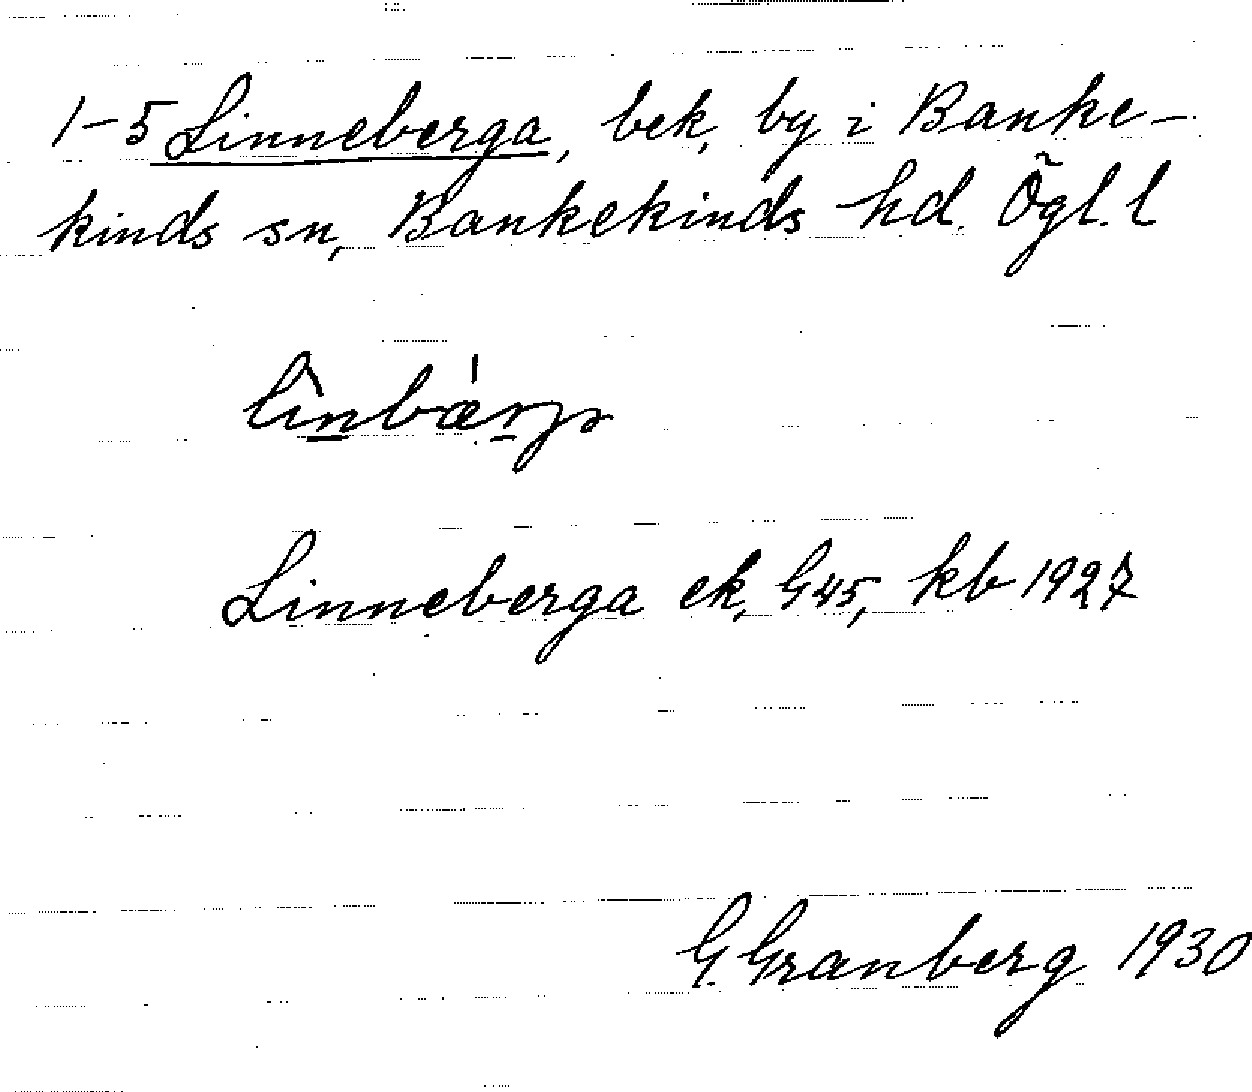 1-5 Linneberga, bek, by i Banke-
kinds sn, Bankekinds hd. Ögl. l
Linneberga ek, G45, kb 1927
G. Granberg 1930